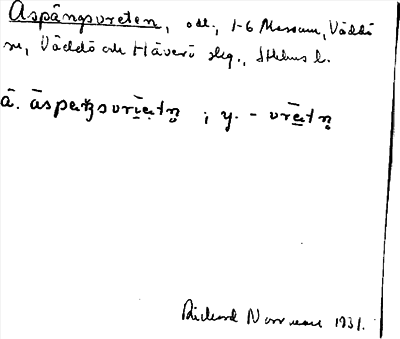 Aspångsvreten, odl., 1-6 Massum, Väddö
sn, Väddö och Häverö skg., Sthlms l.
ā. āspaꜧsvrìa̱tn̥ ; y. - vrēa̱tn̥
Rickard Norrman 1931.